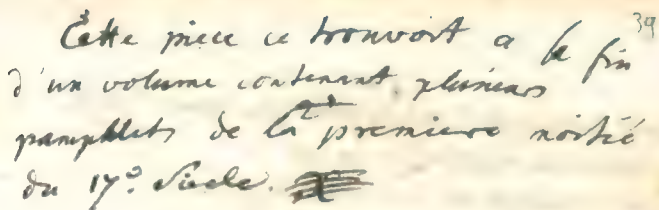 Cette piece ce trouvoit a la fin 39
d'un volume contenant plusieurs
pamphlets de la premiere moitié
du 17e. Siecle.